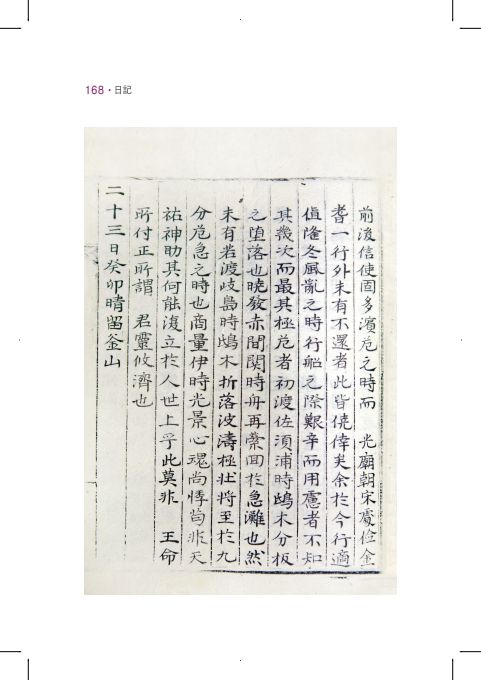 168 • 日記
前後信使固多濱危之時而　光廟朝宋處儉金
耆一行外未有不還者此皆僥倖矣余於今行適
值隆冬風亂之時行船之際艱辛而用慮者不知
其幾次而最其極危者初渡佐須浦時鴟木分板
之墮落也曉發赤間関時舟再縈回於急灘也然
未有若渡岐島時鴟木折落波濤極壯將至於九
分危急之時也商量伊時光景心魂尚悸苟非天
祐神助其何能復立於人世上乎此莫非　王命
所付正所謂　君靈攸濟也
二十三日癸卯晴留釜山